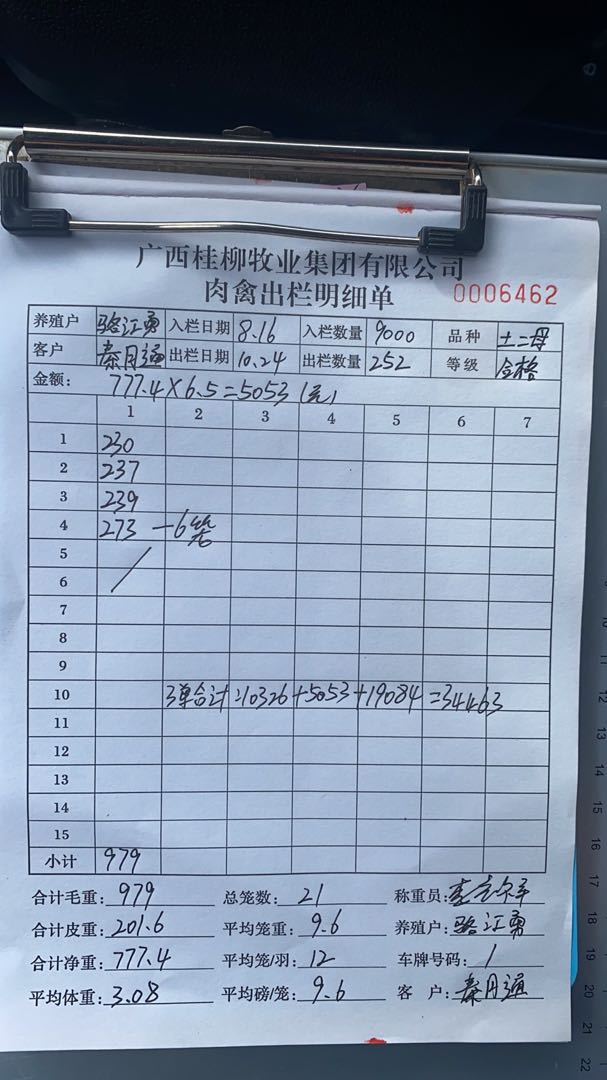 广西桂柳牧业集团有限公司
肉禽出栏明细单 0006462
养殖户 骆江勇 入栏日期 8.16 入栏数量 9000 品种 土二母
客户 秦月通 出栏日期 10.24 出栏数量 252 等级 合格
金额: 777.4×6.5=5053(元)
1 2 3 4 5 6 7
1 230
2 237
3 239
4 273 —6笼
5
6
7
8
9
10 3单合计:10326+5053+19084=34463
11
12
13
14
15
小计 979
合计毛重: 979 总笼数: 21 称重员:
合计皮重: 201.6 平均笼重: 9.6 养殖户: 骆江勇
合计净重: 777.4 平均笼/羽: 12 车牌号码: /
平均体重: 3.08 平均磅/笼: 9.6 客 户: 秦月通
12
13
14
15
16
17
18
19
20
21
22